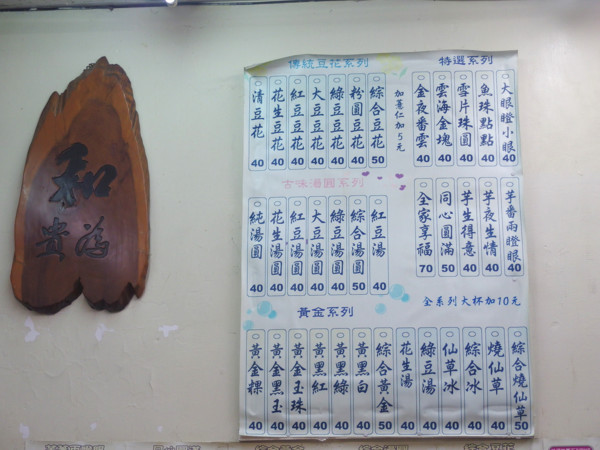 和
為貴
傳統豆花系列
清豆花 40
花生豆花 40
紅豆豆花 40
大豆豆花 40
綠豆豆花 40
粉圓豆花 40
綜合豆花 50
加薏仁加5元
特選系列
金夜番雲 40
雲海金塊 40
雪片珠圓 40
魚珠點點 40
大眼瞪小眼 40
全家享福 70
同心圓滿 50
芋生得意 40
芋夜生情 40
芋番兩瞪眼 40
古味湯圓系列
純湯圓 40
花生湯圓 40
紅豆湯圓 40
大豆湯圓 40
綠豆湯圓 40
綜合湯圓 50
紅豆湯 40
全系列大杯加10元
黃金系列
黃金粿 40
黃金黑玉 40
黃金玉珠 40
黃黑紅 40
黃黑綠 40
黃黑白 40
綜合黃金 50
花生湯 40
綠豆湯 40
仙草冰 40
綜合冰 40
燒仙草 40
綜合燒仙草 50